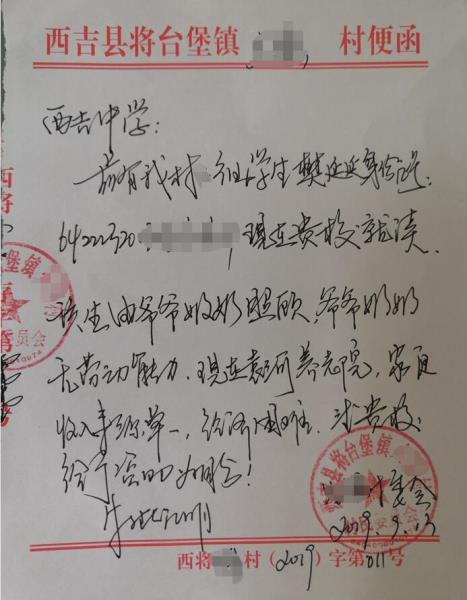 西吉县将台堡镇 村便函
西吉中学:
兹有我村 组学生樊延延身份证:
64222320 ,现在贵校就读.
该生由爷爷奶奶照顾,爷爷奶奶
无劳动能力.现在 养老院,家庭
收入来源单一,经济困难.请贵校
给予资助为盼!
特此证明
村委会
2019.9.
西将 村(2019)字第011号
西吉县将台堡镇
堡镇